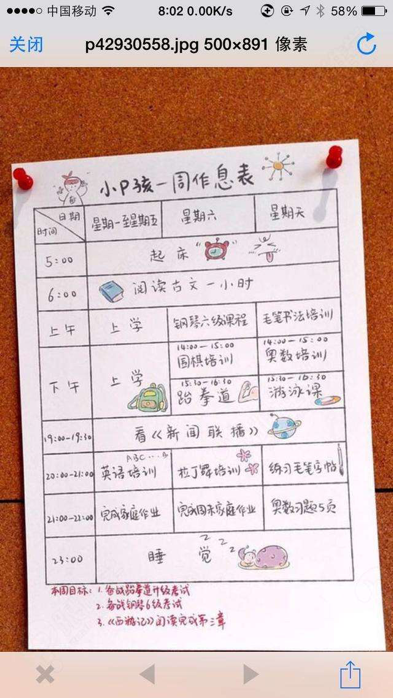 中国移动 8:02 0.00K/s 58%
关闭 p42930558.jpg 500×891 像素
小P孩一周作息表
日期 时间 星期一至星期五 星期六 星期天
5:00 起床
6:00 阅读古文一小时
上午 上学 钢琴六级课程 毛笔书法培训
下午 上学
14:00-15:00 围棋培训 14:00-15:00 奥数培训
15:10-16:10 跆拳道 15:10-16:30 游泳课
19:00-19:30 看《新闻联播》
ABC...
20:00-21:00 英语培训 拉丁舞培训 练习毛笔字帖
21:00-22:00 完成家庭作业 完成周末家庭作业 奥数习题5页
23:00 睡觉 zzz
本周目标：1.备战跆拳道升级考试
2.备战钢琴6级考试
3.《西游记》阅读完成第三章